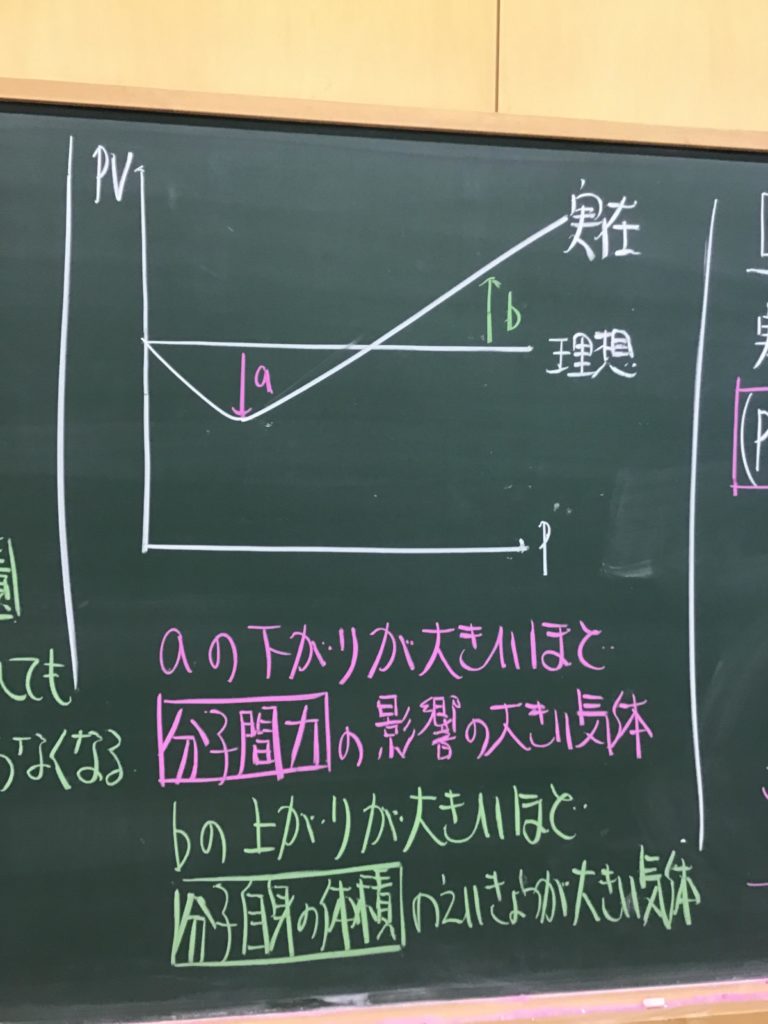 PV
実在
b
理想
a
P
aの下がりが大きいほど
分子間力の影響の大きい気体
bの上がりが大きいほど
分子自身の体積のえいきょうが大きい気体
積
ても
なくなる
実
(P